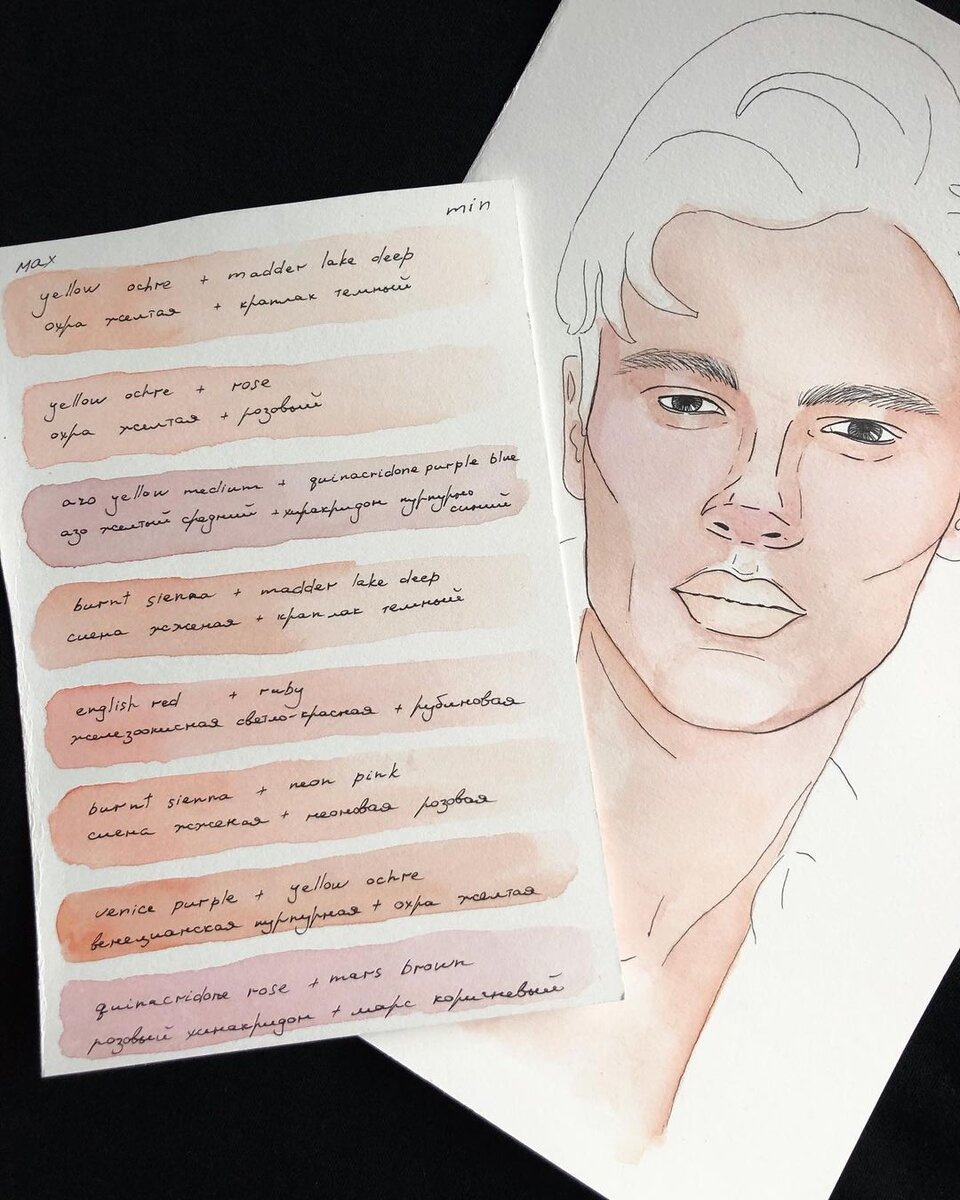 max
min
yellow ochre + madder lake deep
охра желтая + краплак темный
yellow ochre + rose
охра желтая + розовый
azo yellow medium + quinacridone purple blue
азо желтый средний + хинакридон пурпурно
синий
burnt sienna + madder lake deep
сиена жженая + краплак темный
english red + ruby
железоокисная светло-красная + рубиновая
burnt sienna + neon pink
сиена жженая + неоновая розовая
venice purple + yellow ochre
венецианская пурпурная + охра желтая
quinacridone rose + mars brown
розовый хинакридон + марс коричневый